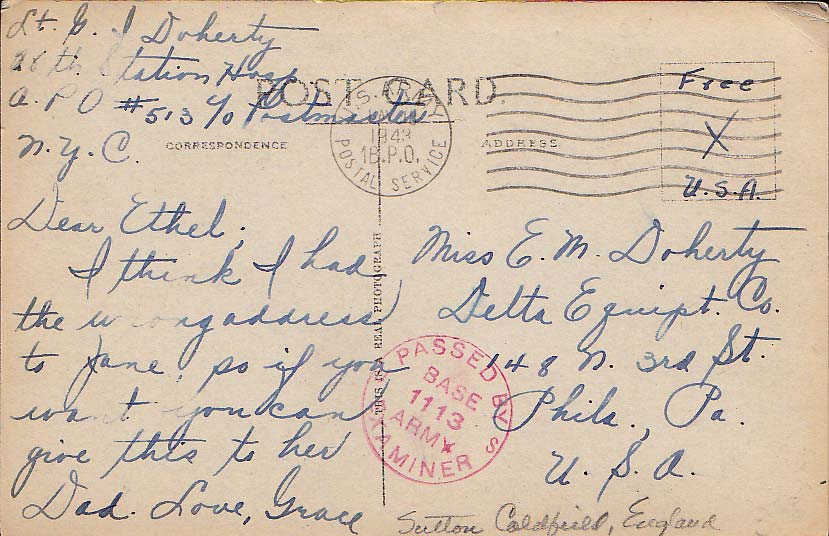 Lt. G. I Doherty
28th Station Hosp
A.P.O #513 c/o Postmaster
N.Y.C.
POST CARD.
CORRESPONDENCE
ADDRESS
U.S. ARMY
1943
1B.P.O.
POSTAL SERVICE
Free
X
U.S.A.
Dear Ethel;
I think I had
the wrong address
to Jane, so if you
want you can
give this to her
Dad. Love, Grace
THIS IS A REAL PHOTOGRAPH
PASSED BY U S
BASE
1113
ARMY
EXAMINER
Miss E. M. Doherty
Delta Equipt. Co.
148 N. 3rd St.
Phila., Pa.
U.S.A.
Sutton Coldfield, England